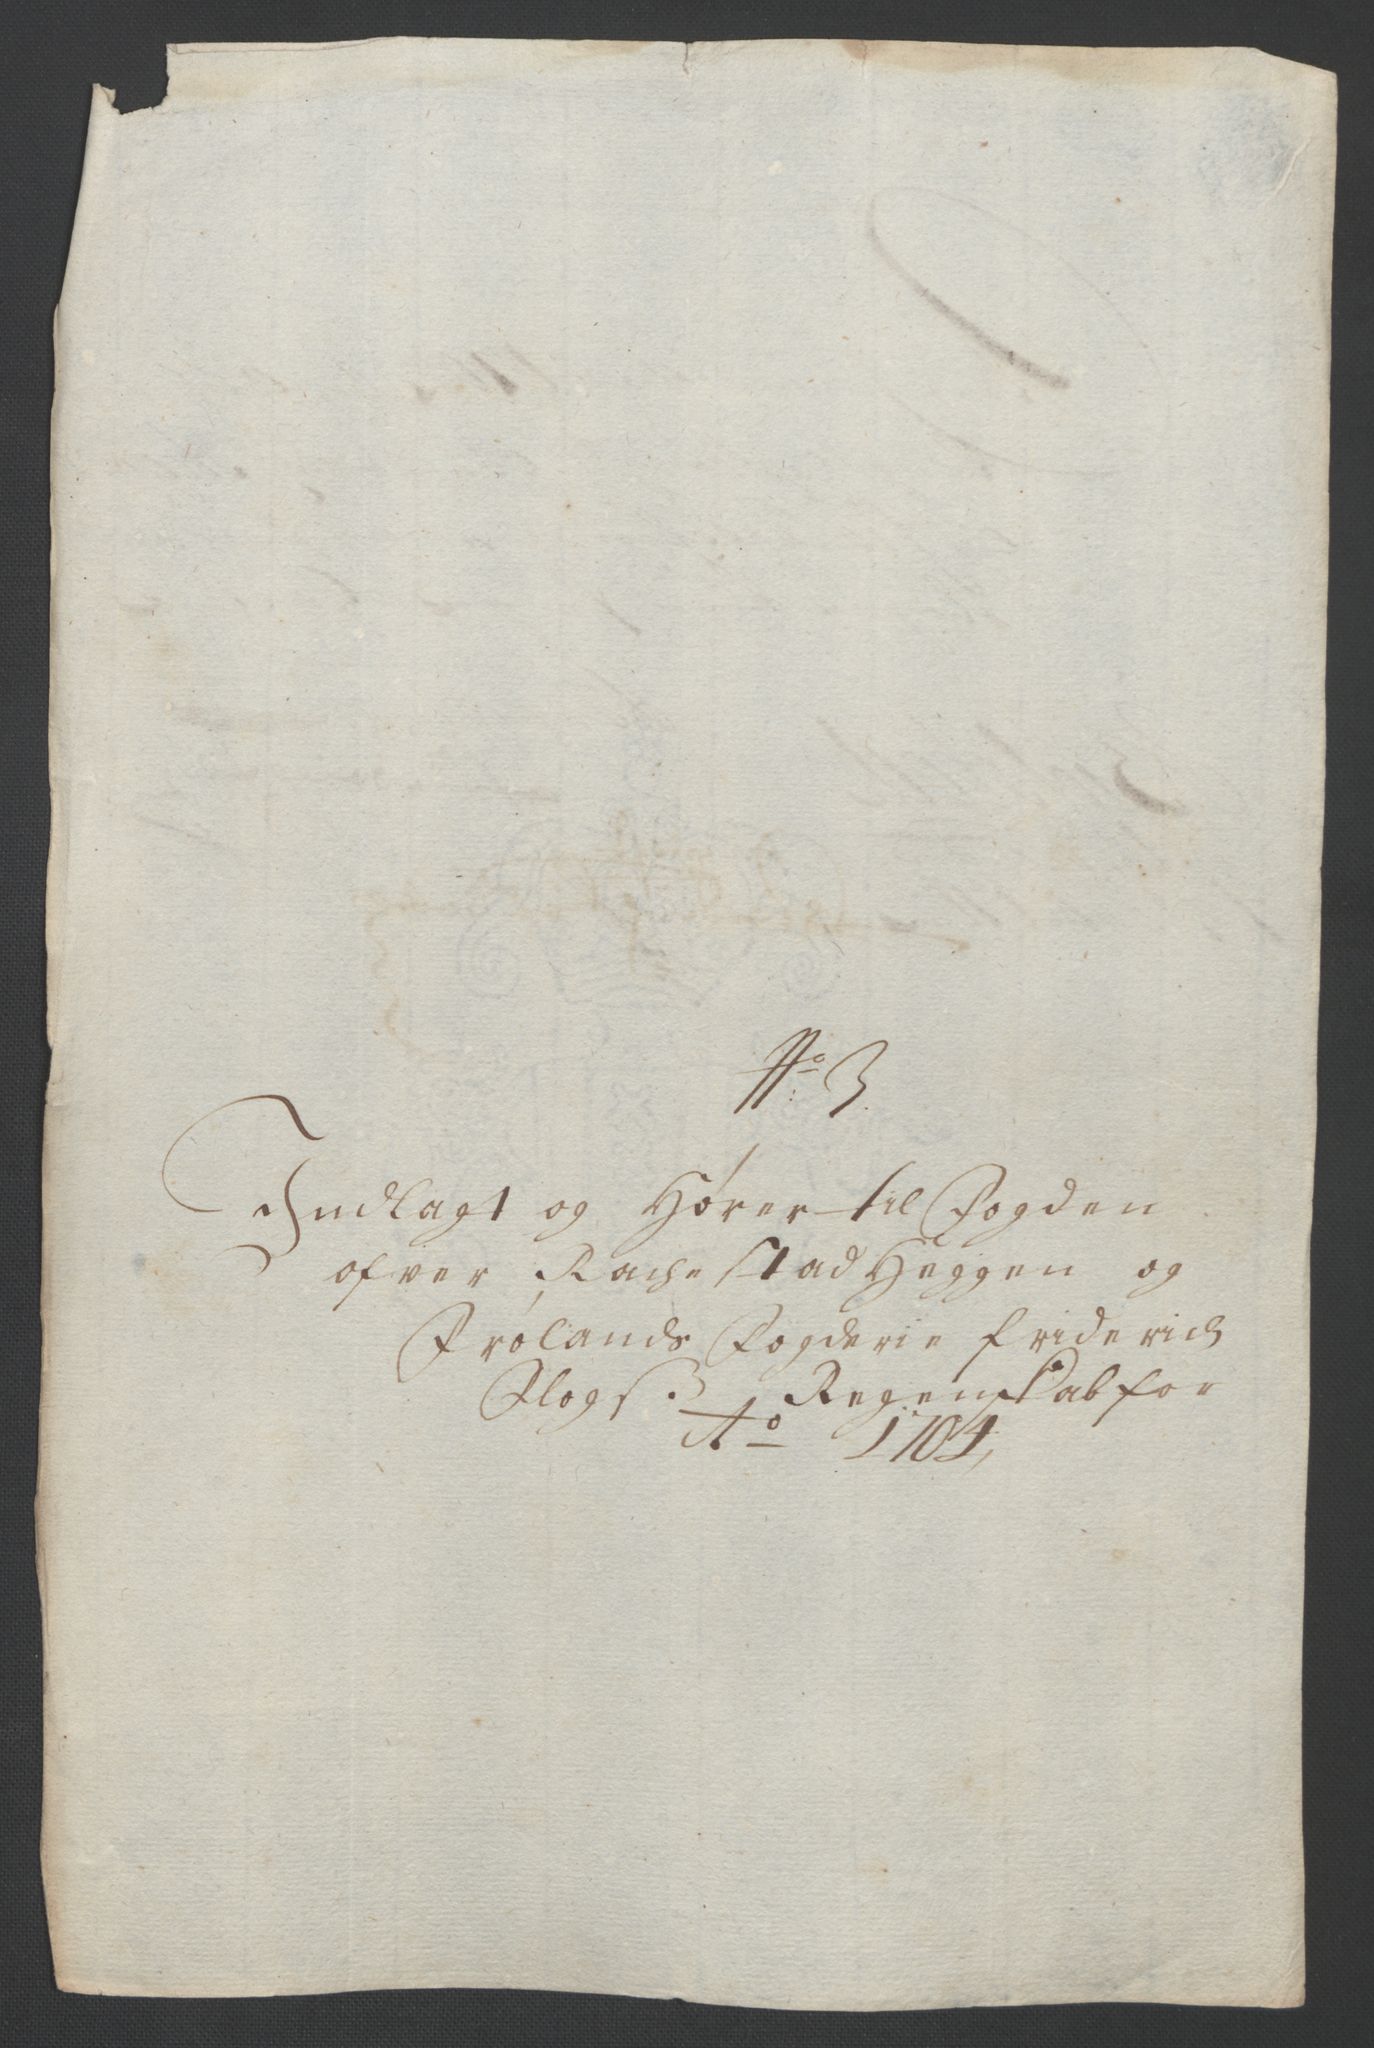 No 3.
Indlagt og Hører til Fogden
ofver Rachestad Heggen og
Frølands Fogderie Friderich
Flogs. Regenskab for
Ao 1704,